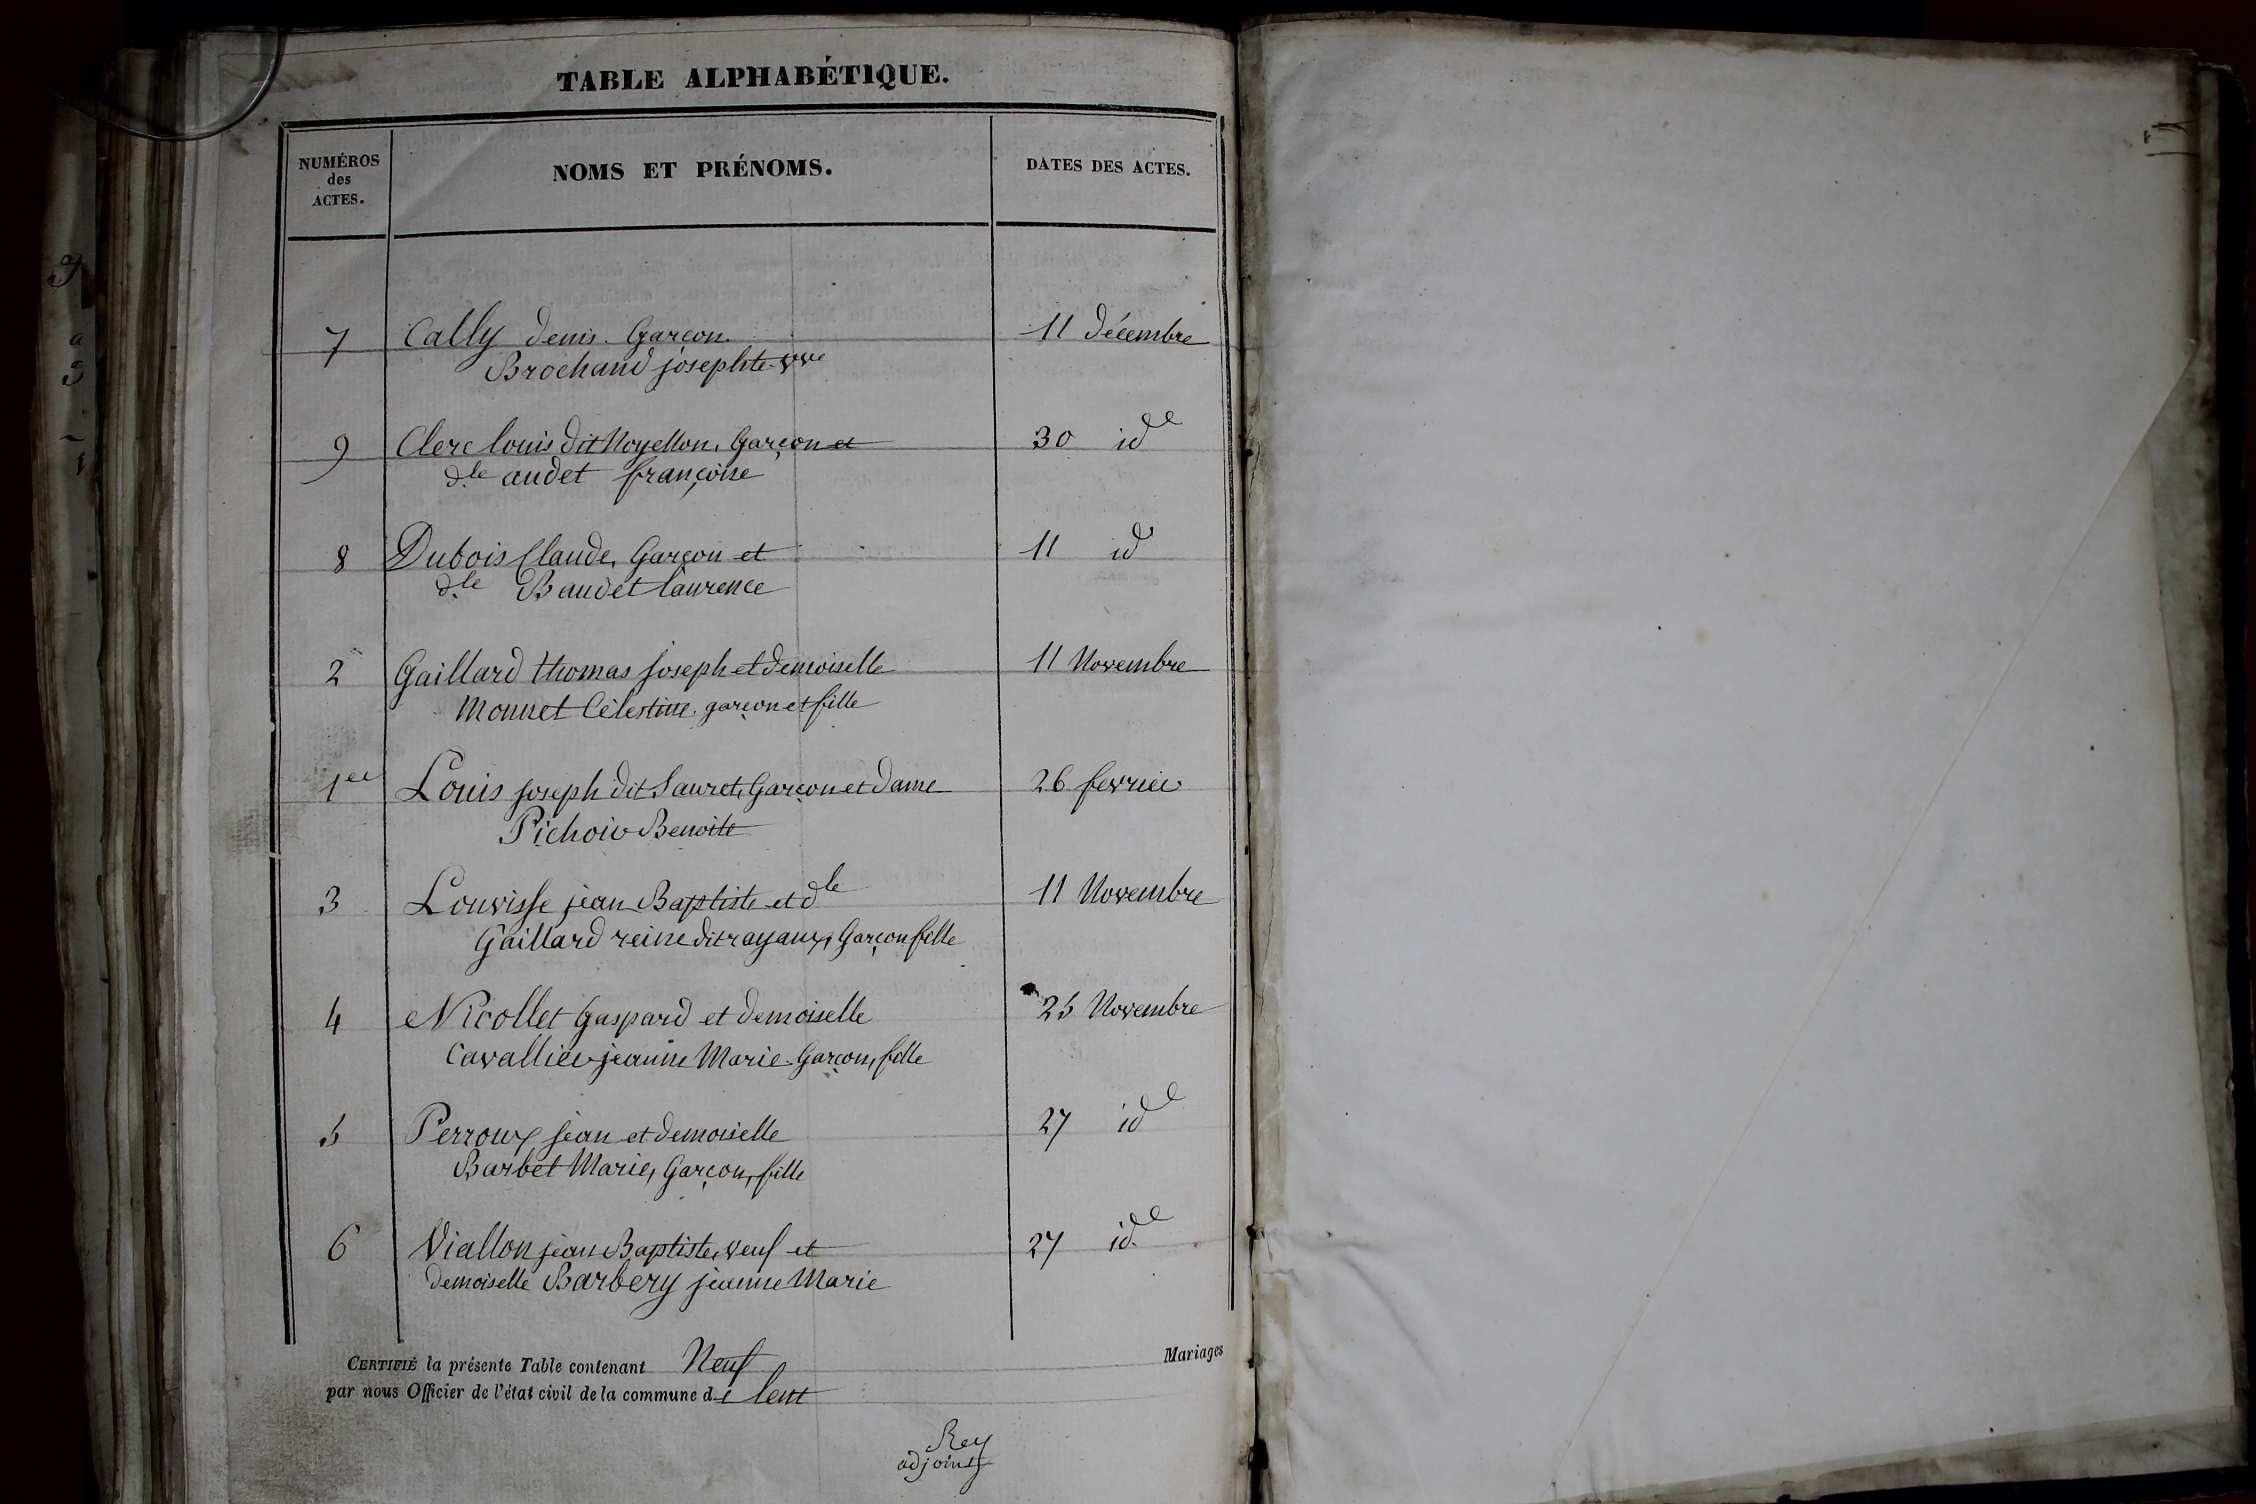 TABLE ALPHABÉTIQUE.
NUMÉROS des ACTES.
NOMS ET PRÉNOMS.
DATES DES ACTES.
7 Cally denis. Garçon. 11 décembre
Brochand josephte vve
9 Clerc louis dit Noyellon, Garçon et 30 id
dlle audet françoise
8 Dubois Claude, Garçon et 11 id
dlle Baudet laurence
2 Gaillard thomas joseph et demoiselle 11 Novembre
Monnet Célestine. garçon et fille
1er Louis joseph dit Sauret, Garçon et dame 26 fevrier
Pichoir Benoite
3 Louvisse jean Baptiste et dle 11 Novembre
Gaillard reine dit rayaux, Garçon fille
4 Nicollet gaspard et demoiselle 25 Novembre
Cavallier jeanne Marie. Garçon, fille
5 Perroux jean et demoiselle 27 id
Barbet Marie, Garçon, fille
6 Viallon jean Baptiste, veuf et 27 id.
demoiselle Barbery jeanne Marie
CERTIFIÉ la présente Table contenant Neuf Mariages
par nous Officier de l'état civil de la commune de lent
Rey
adjoint